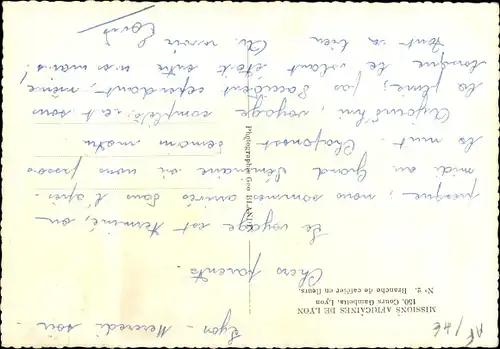 Lyon - Mercredi soir -
MISSIONS AFRICAINES DE LYON
150, Cours Gambetta, Lyon
N° 2. Branche de caféier en fleurs.
Chers parents.
Le voyage est terminé, ou
presque, nous sommes arrivés dans l'après-
midi au Grand Séminaire où nous passons
la nuit. Chaponost demain matin
Aujourd'hui, voyage complet sous
la pluie; pas d'accident cependant, même
lorsque le volant était entre nos mains!
Tout va bien Au revoir
Louis
Photographie Geo BLANC
AF/AE